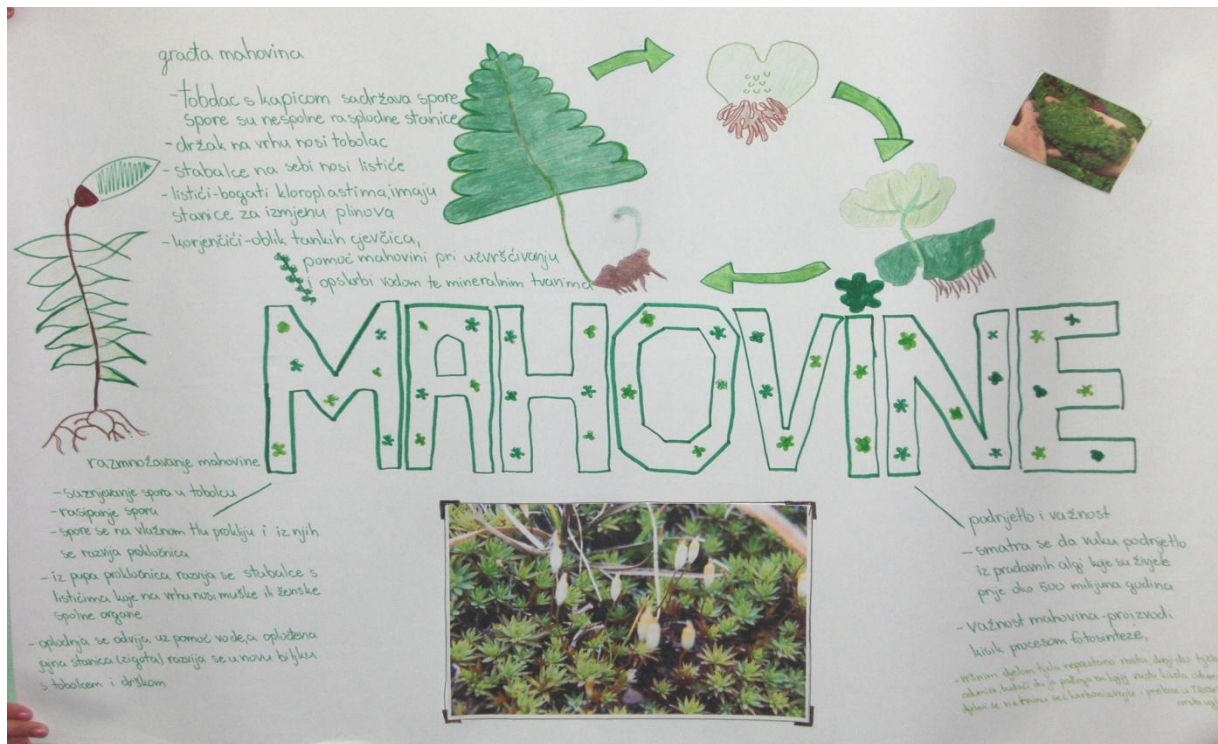 građa mahovina
-tobolac s kapicom sadržava spore
spore su nespolne rasplodne stanice
-držak na vrhu nosi tobolac
-stabalce na sebi nosi listiće
-listići-bogati kloroplastima, imaju
stanice za izmjenu plinova
-korjenčići-oblik tankih cjevčica,
pomoć mahovini pri učvršćivanju
i opskrbi vodom te mineralnim tvarima
MAHOVINE
razmnožavanje mahovine
-sazrijevanje spora u tobolcu
-rasipanje spora
-spore se na vlažnom tlu prokliju i iz njih
se razvija prokličnica
-iz pupa prokličnica razvija se stabalce s
listićima koje na vrhu nosi muške ili ženske
spolne organe
-oplodnja se odvija uz pomoć vode, a oplođena
jajna stanica (zigota) razvija se u novu biljku
s tobolcem i drškom
podrijetlo i važnost
-smatra se da vuku podrijetlo
iz pradavnih algi koje su živjele
prije oko 500 milijuna godina
-važnost mahovina-proizvodi
kisik procesom fotosinteze,
-vršnim dijelom tijela neprestano rastu, donji dio tijela
odumire, budući da je podloga na kojoj rastu
dijelovi se ne trunu već karboniziraju i prelaze u TRESET